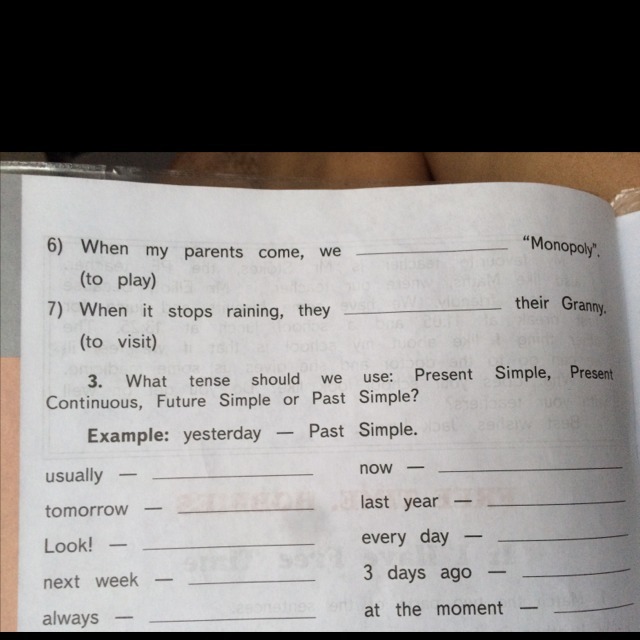 6) When my parents come, we ____________ "Monopoly".
(to play)
7) When it stops raining, they ____________ their Granny.
(to visit)
3. What tense should we use: Present Simple, Present
Continuous, Future Simple or Past Simple?
Example: yesterday — Past Simple.
usually — ____________ now — ____________
tomorrow — ____________ last year — ____________
Look! — ____________ every day — ____________
next week — ____________ 3 days ago — ____________
always — ____________ at the moment — ____________